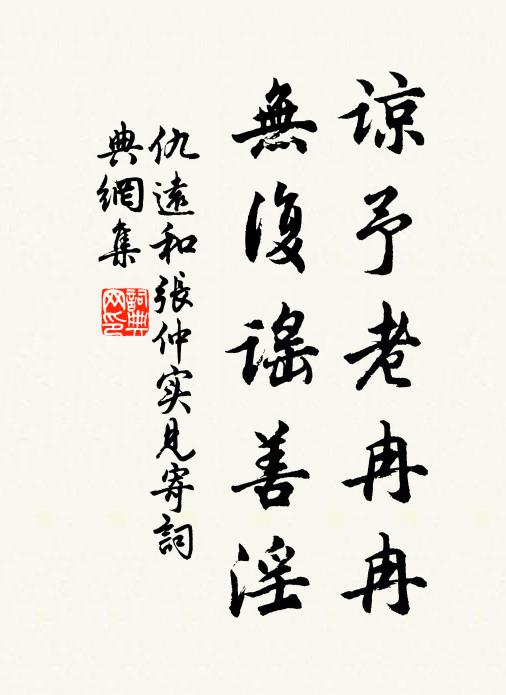 諒予老冉冉
無復謠善淫
仇遠和張仲实見寄詞
典網集
詞典网印